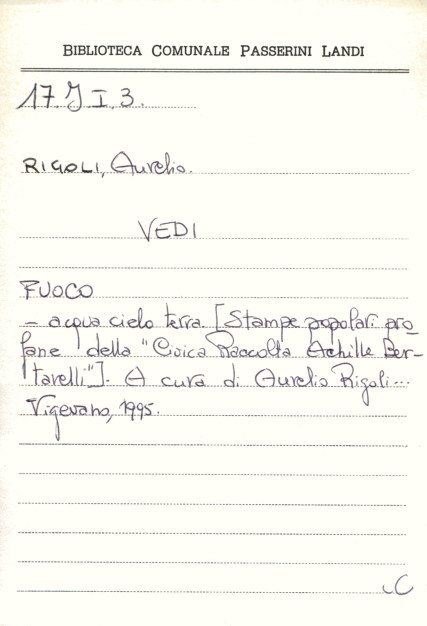 BIBLIOTECA COMUNALE PASSERINI LANDI
17. J I, 3.
RIGOLI, Aurelio.
VEDI
FUOCO
- acqua cielo terra. [Stampe popolari pro_
fane della "Civica Raccolta Achille Ber-
tarelli"]. A cura di Aurelio Rigoli...
Vigevano, 1995.